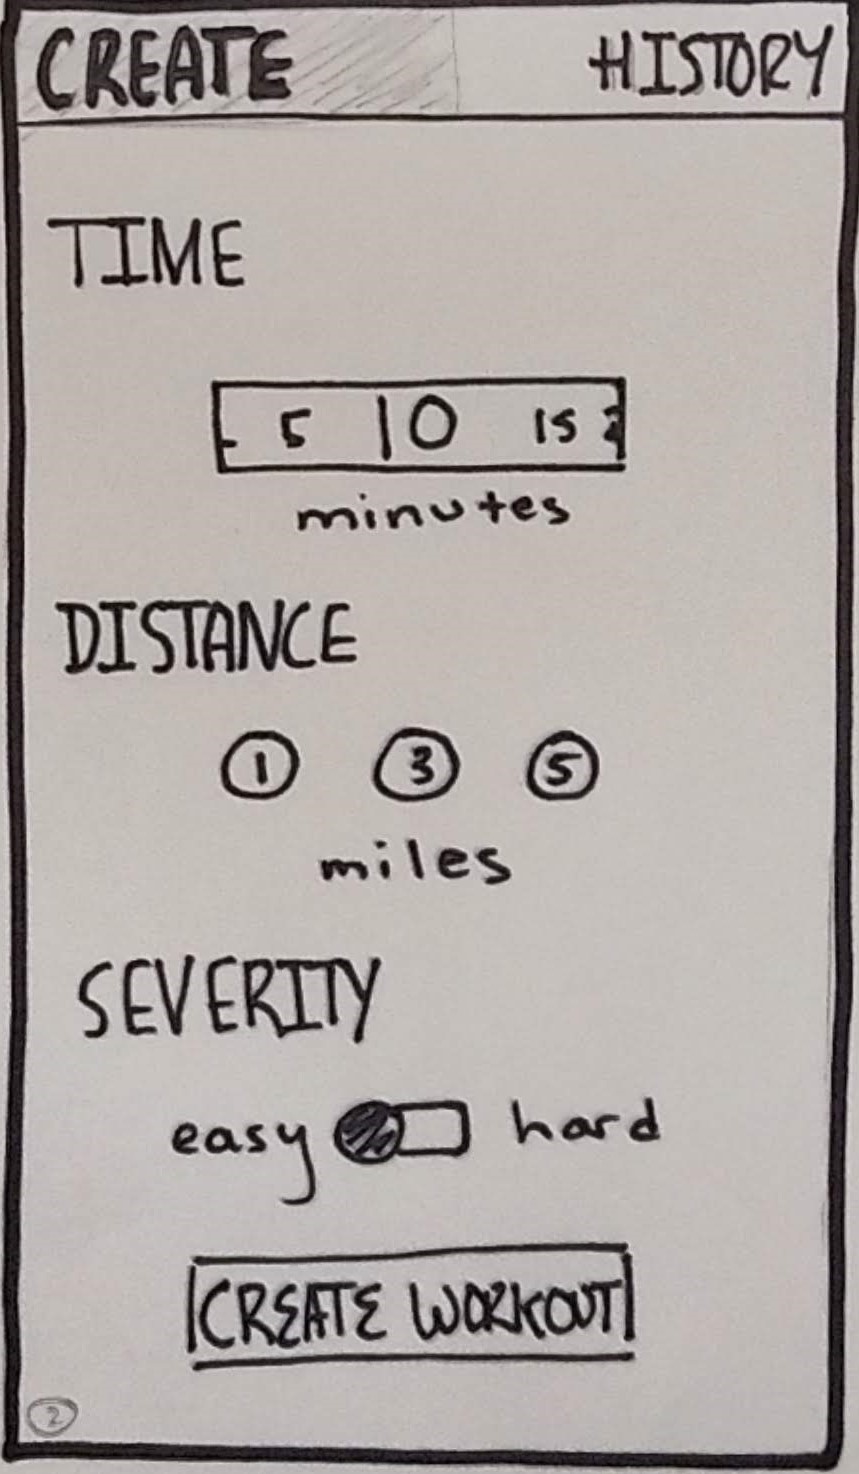 CREATE HISTORY
TIME
5 10 15
minutes
DISTANCE
1 3 5
miles
SEVERITY
easy hard
CREATE WORKOUT
2